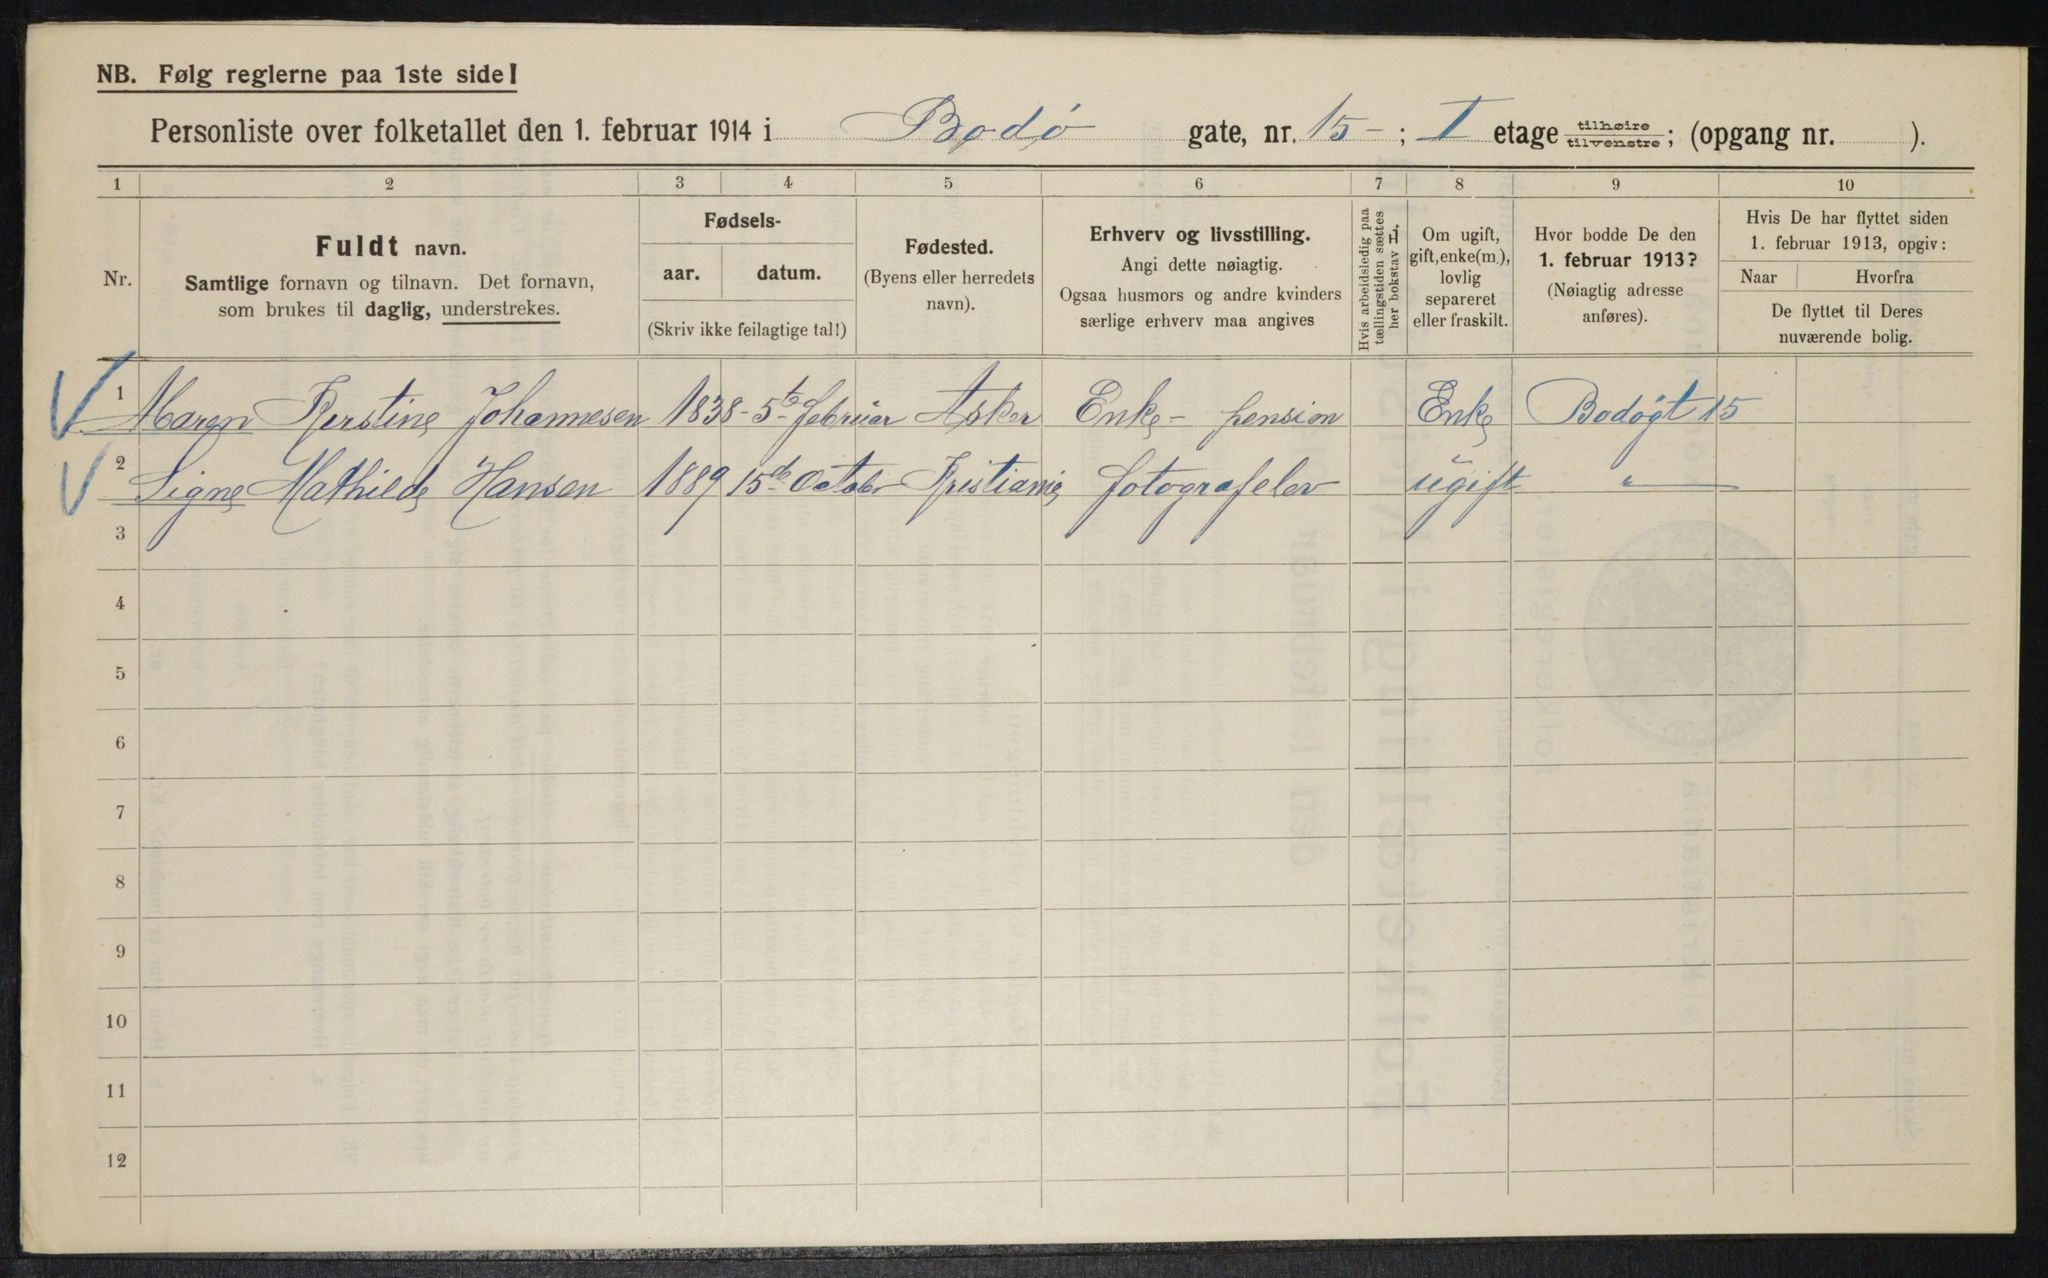 NB. Følg reglerne paa 1ste side!
Personliste over folketallet den 1. februar 1914 i Bodø gate, nr. 15 - ; I etage tilhøire/tilvenstre; (opgang nr. ).
1 2 3 4 5 6 7 8 9 10
Nr.
Fuldt navn.
Samtlige fornavn og tilnavn. Det fornavn,
som brukes til daglig, understrekes.
Fødsels-
aar. datum.
(Skriv ikke feilagtige tal!)
Fødested.
(Byens eller herredets
navn).
Erhverv og livsstilling.
Angi dette nøiagtig.
Ogsaa husmors og andre kvinders
særlige erhverv maa angives
Hvis arbeidsledig paa
tællingstiden sættes
her bokstav L.
Om ugift,
gift, enke(m.),
lovlig
separeret
eller fraskilt.
Hvor bodde De den
1. februar 1913?
(Nøiagtig adresse
anføres).
Hvis De har flyttet siden
1. februar 1913, opgiv:
Naar Hvorfra
De flyttet til Deres
nuværende bolig.
1 Maren Kerstine Johannesen 1838 - 5te februar Asker Enke - pension Enke Bodøgt 15
2 Signe Mathilde Hansen 1889 15de October Kristiania fotografelev ugift "
3
4
5
6
7
8
9
10
11
12